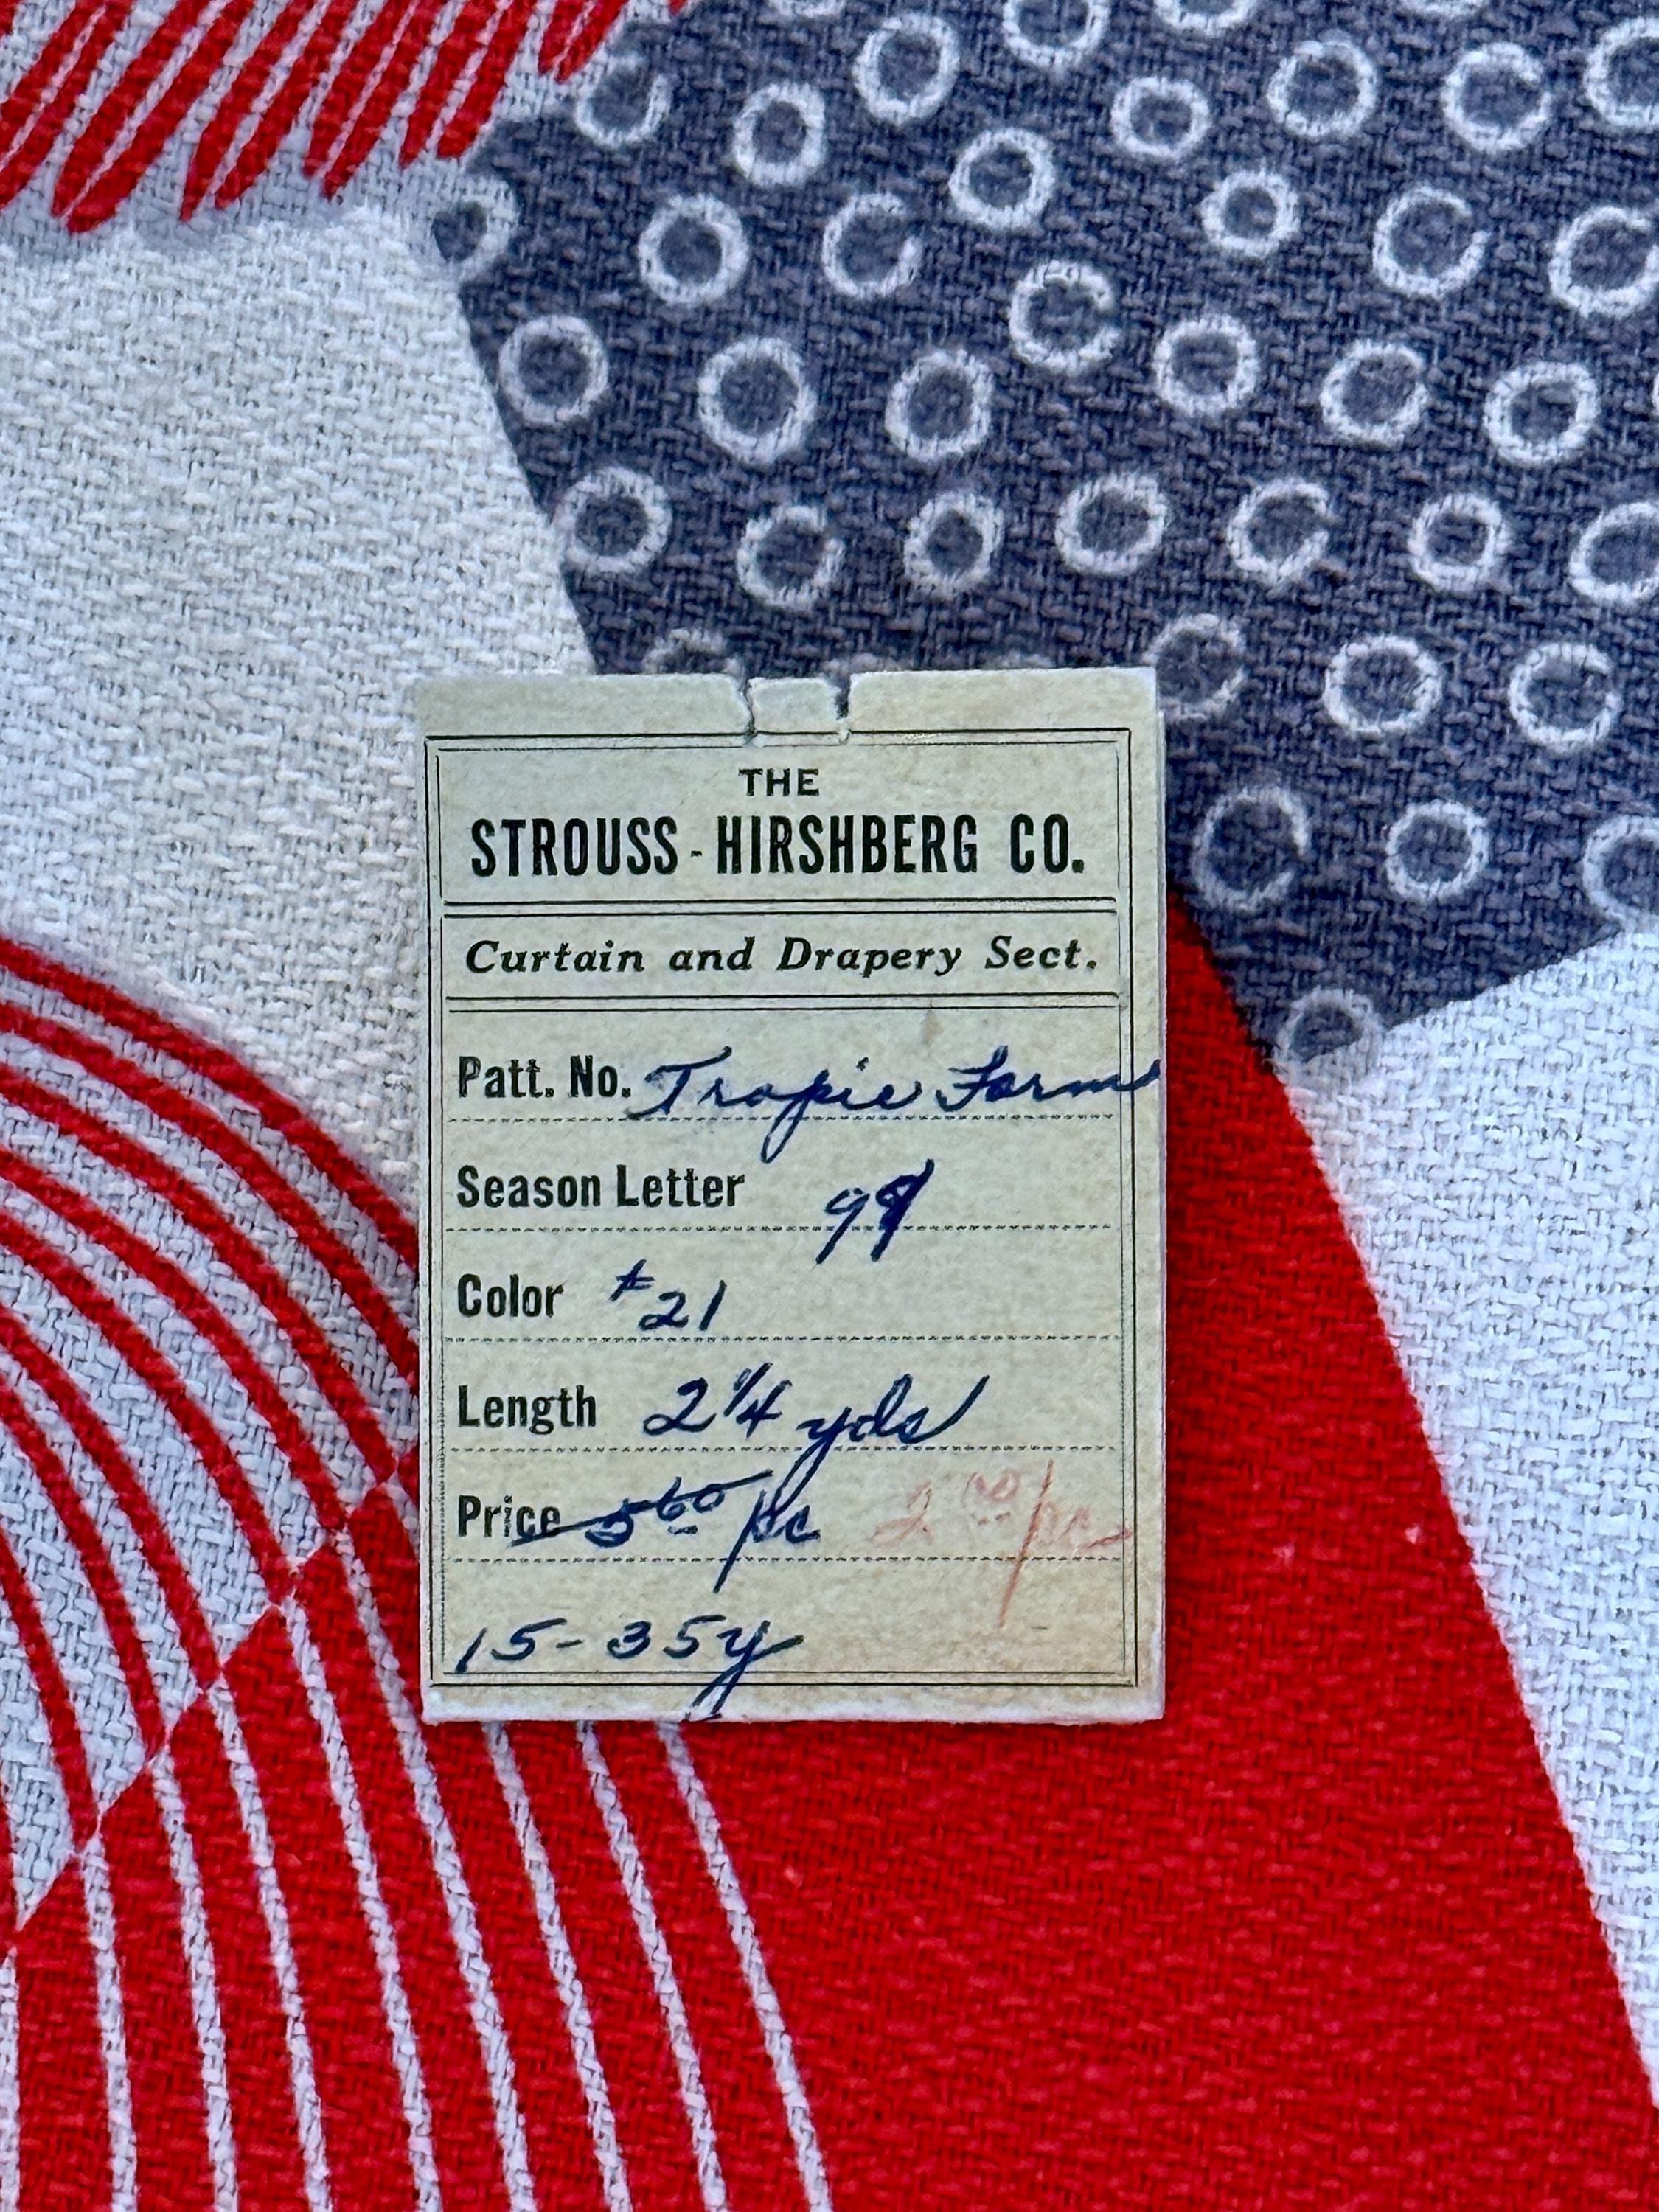 THE
STROUSS-HIRSHBERG CO.
Curtain and Drapery Sect.
Patt. No. Tropic Forms
Season Letter
Color #21
Length 2 1/4 yds
Price 5 60/pc 2 00/pc
15-35y